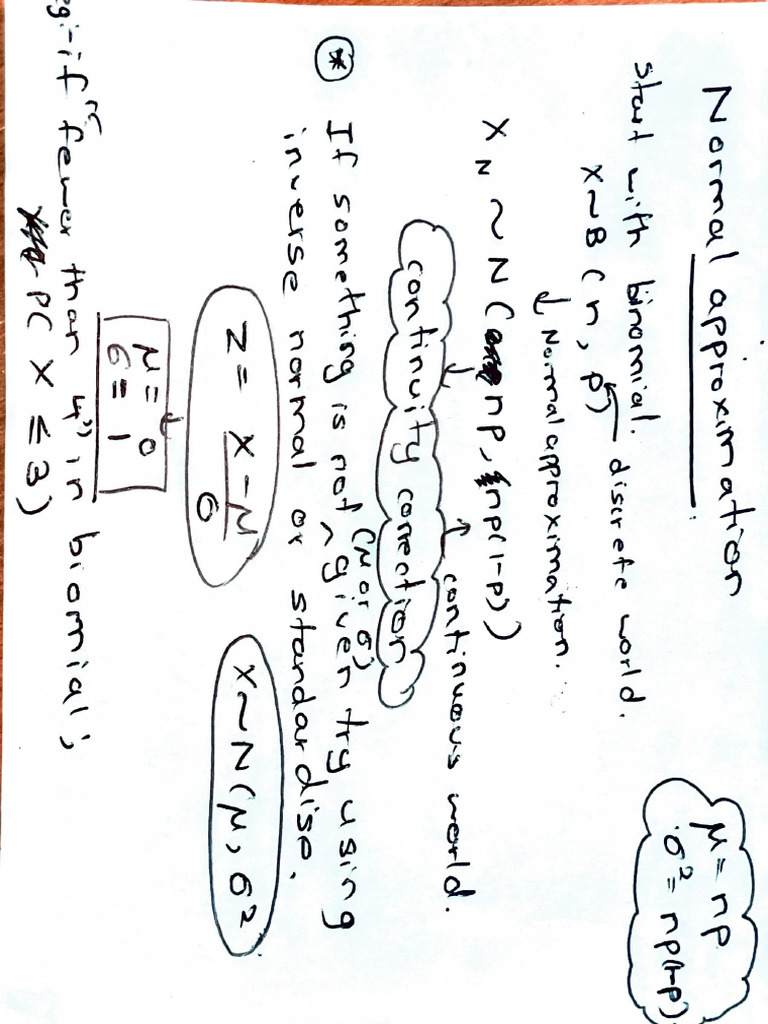 Normal approximation
μ = np
σ² = np(1-p)
start with binomial.
X ~ B(n, p) discrete world.
↓ Normal approximation.
X_N ~ N(np, np(1-p))
continuous world.
continuity correction
* If something is not (μ or σ) given try using
inverse normal or standardise.
Z = (X - μ)/σ
X ~ N(μ, σ²
μ = 0
σ = 1
eg:- if "fewer than 4" in biomial;
P(X ≤ 3)